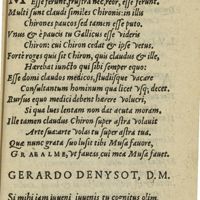 Esse ferunt, frustra nec, reor, esse ferunt.
Multi sunt claudi similes Chironis: in illis
Chirones paucos sed tamen esse puto.
Vnus & è paucis tu Gallicus esse videris
Chiron: cui Chiron cedat & ipse vetus.
Fortè roges quis sit Chiron, quis claudus & ille,
Herbas iunctò qui sibi semper equo:
Esse domi claudos medicos, studiísque vacare
Consultantum hominum qua licet vsq; decet.
Rursus equo medici debent harere volucri,
Si qua lues lentam non dat acuta moram.
Ille tamen claudus Chiron super astra volauit
Arte sua: arte volas tu super astra tua.
Quæ nunc grata suo lusit tibi Musa fauore,
GRAEAE ALME, vt faueas cui mea Musa fauet.
GERARDO DENYSOT, D. M.
Si mihi iam iuueni, iuuenis tu cognitus olim